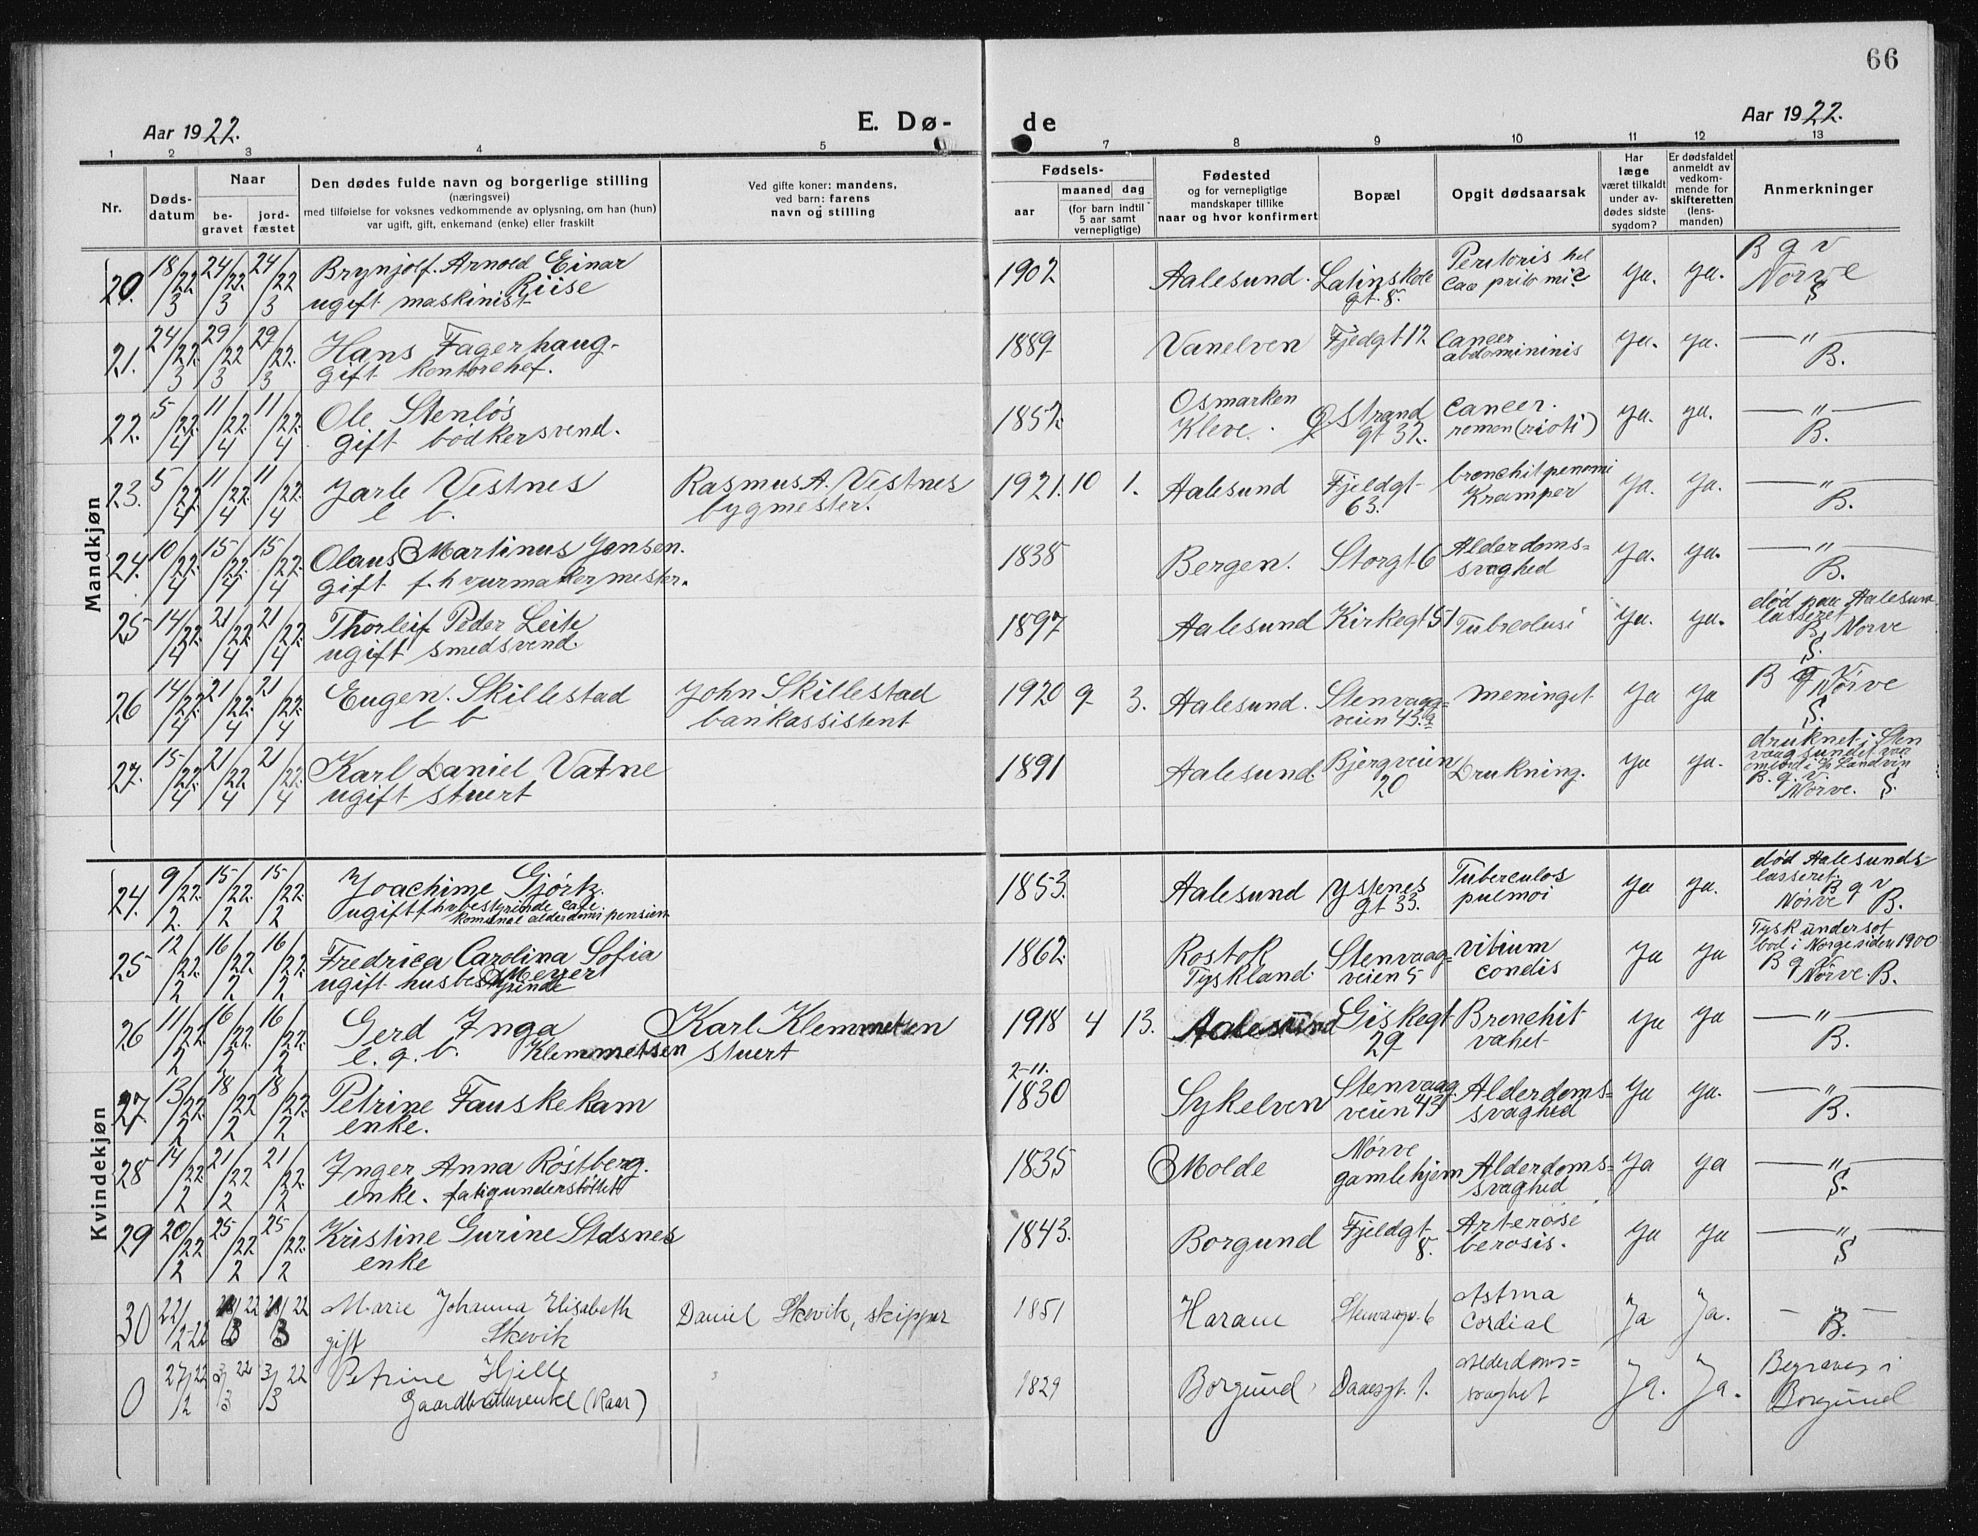 66
Aar 1922.
E. Dø-
de
Aar 1922.
1 2 3 4 5 7 8 9 10 11 12 13
Nr.
Døds-
datum
Naar
be-
gravet
jord-
fæstet
Den dødes fulde navn og borgerlige stilling
(næringsvei)
med tilføielse for voksnes vedkommende av oplysning, om han (hun)
var ugift, gift, enkemand (enke) eller fraskilt
Ved gifte koner: mandens,
ved barn: farens
navn og stilling
Fødsels-
aar
maaned dag
(for barn indtil
5 aar samt
vernepligtige)
Fødested
og for vernepligtige
mandskaper tillike
naar og hvor konfirmert
Bopæl
Opgit dødsaarsak
Har
læge
været tilkaldt
under av-
dødes sidste
sygdom?
Er dødsfaldet
anmeldt av
vedkom-
mende for
skifteretten
(lens-
manden)
Anmerkninger
Mandkjøn
20. 18/3 22 24/3 22 24/3 22 Brynjolf Arnold Einar
Riise
ugift maskinist
1902 Aalesund. Latinskole
gt. 8. ya. ya. B g v
Nørve
S
21. 24/3 22. 29/3 22 29/3 22. Hans Fagerhaug
gift kontorchef.
1889 Vanelven Fjedgt 12 Cancer
abdomininis ya. ya. — " —
B.
22. 5/4 22. 11/4 22. 11/4 22. Ole Stenløs
gift bødkersvend.
1852 Osmarken
Kleve. Ø Strand
gt 32. Cancer ya. ya. — " —
B.
23. 5/4 22. 11/4 22. 11/4 22. Jarle Vestnes
e b.
Rasmus A. Vestnes
bygmester.
1921. 10 1. Aalesund Fjeldgt
63. Kramper ya. ya. — " —
B.
24. 10/4 22. 15/4 22. 15/4 22. Olaus Martinus Jensen.
gift f. h v urmakermester.
1838 Bergen. Storgt 6 Alderdoms=
svaghed ya. ya. — " —
B.
25 14/4 22. 21/4 22. 21/4 22. Thorleif Peder Leite
ugift smedsvend.
1897 Aalesund Kirkegt 51 ya. ya. død paa Aalesunds
lasseret
B Nørve
S.
26 14/4 22. 21/4 22. 21/4 22. Eugen. Skillestad
e b
John Skillestad
bankassistent
1920 9 3. Aalesund. Stenvaag=
veien 43 meninget ya ya B g v
Nørve
S.
27. 15/4 22. 21/4 22 21/4 22. Karl Daniel Vatne
ugift stuert
1891 Aalesund Bjergveien
20 Drukning. ya ya. druknet i Sten
vaagsundet
B. g. v.
Nørve. S.
Kvindekjøn
24. 9/2 22. 15/2 22. 15/2 22. Joachime Gjørtz.
ugift f h v bestyrinde cafe.
komunal alderdoms pension
1853. Aalesund Ystenes
gt 33. Tuberculos
pulmoi ya ya. død Aalesunds-
lasseret.
B g v
Nørve B.
25 12/2 22. 16/2 22. 16/2 22. Fredrica Carolina Sofia
Meyer
ugift husbestyrinde
1862. Rostok
Tyskland. Stenvaag=
veien 5 vitium
condis ya ya Tysk undersot
bod i Norge siden 1900
B g v
Nørve. B.
26 11/2 22 16/2 22. 16/2 22. Gerd Inga
e. g. b. Klemmetsen
Karl Klemmetsen
stuert
1918 4 13. Aalesund Giskegt
29 Bronchit ya ya — " —
B.
27 13/2 22. 18/2 22 18/2 22. Petrine Fauskekam
enke.
2-11.
1830 Sykelven Stenvaag
veien 43 Alderdoms=
svaghed ya ya. — " —
B.
28 14/2 22 21/2 22 21/2 22. Inger Anna Røstberg.
enke. fatigunderstøttet
1835 Molde Nørve
gamlehjem Alderdoms=
svaghed ya ya — " —
S.
29 20/2 22 25/2 22 25/2 22. Kristine Gurine Stdsnes
enke
1843. Borgund Fjeldgt
8. ya ya — " —
S
30 22/2-22 Marie Johanna Elisabeth
gift Skevik
Daniel Skevik, skipper
1851 Haram Stenvaagv. 6 Astma
Cordial Ja Ja. — " —
B.
0 27/2 22 3/3 22 3/3 22 Petrine Hjelle
(Kaar)
1829 Borgund Daaesgt. 1. Alderdoms=
svaghet Ja. Ja. Begraves i
Borgund